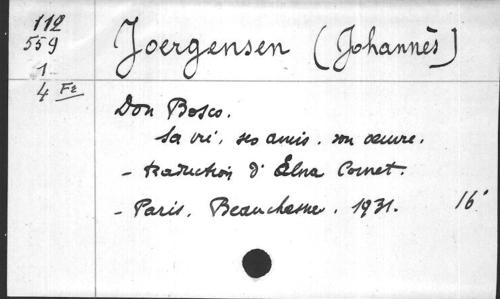 112
559
1
4 Fz
Joergensen (Johannès)
Don Bosco.
Sa vie, ses amis, son œuvre.
- traduction d' Elna Cornet.
- Paris. Beauchesne. 1931. 16°